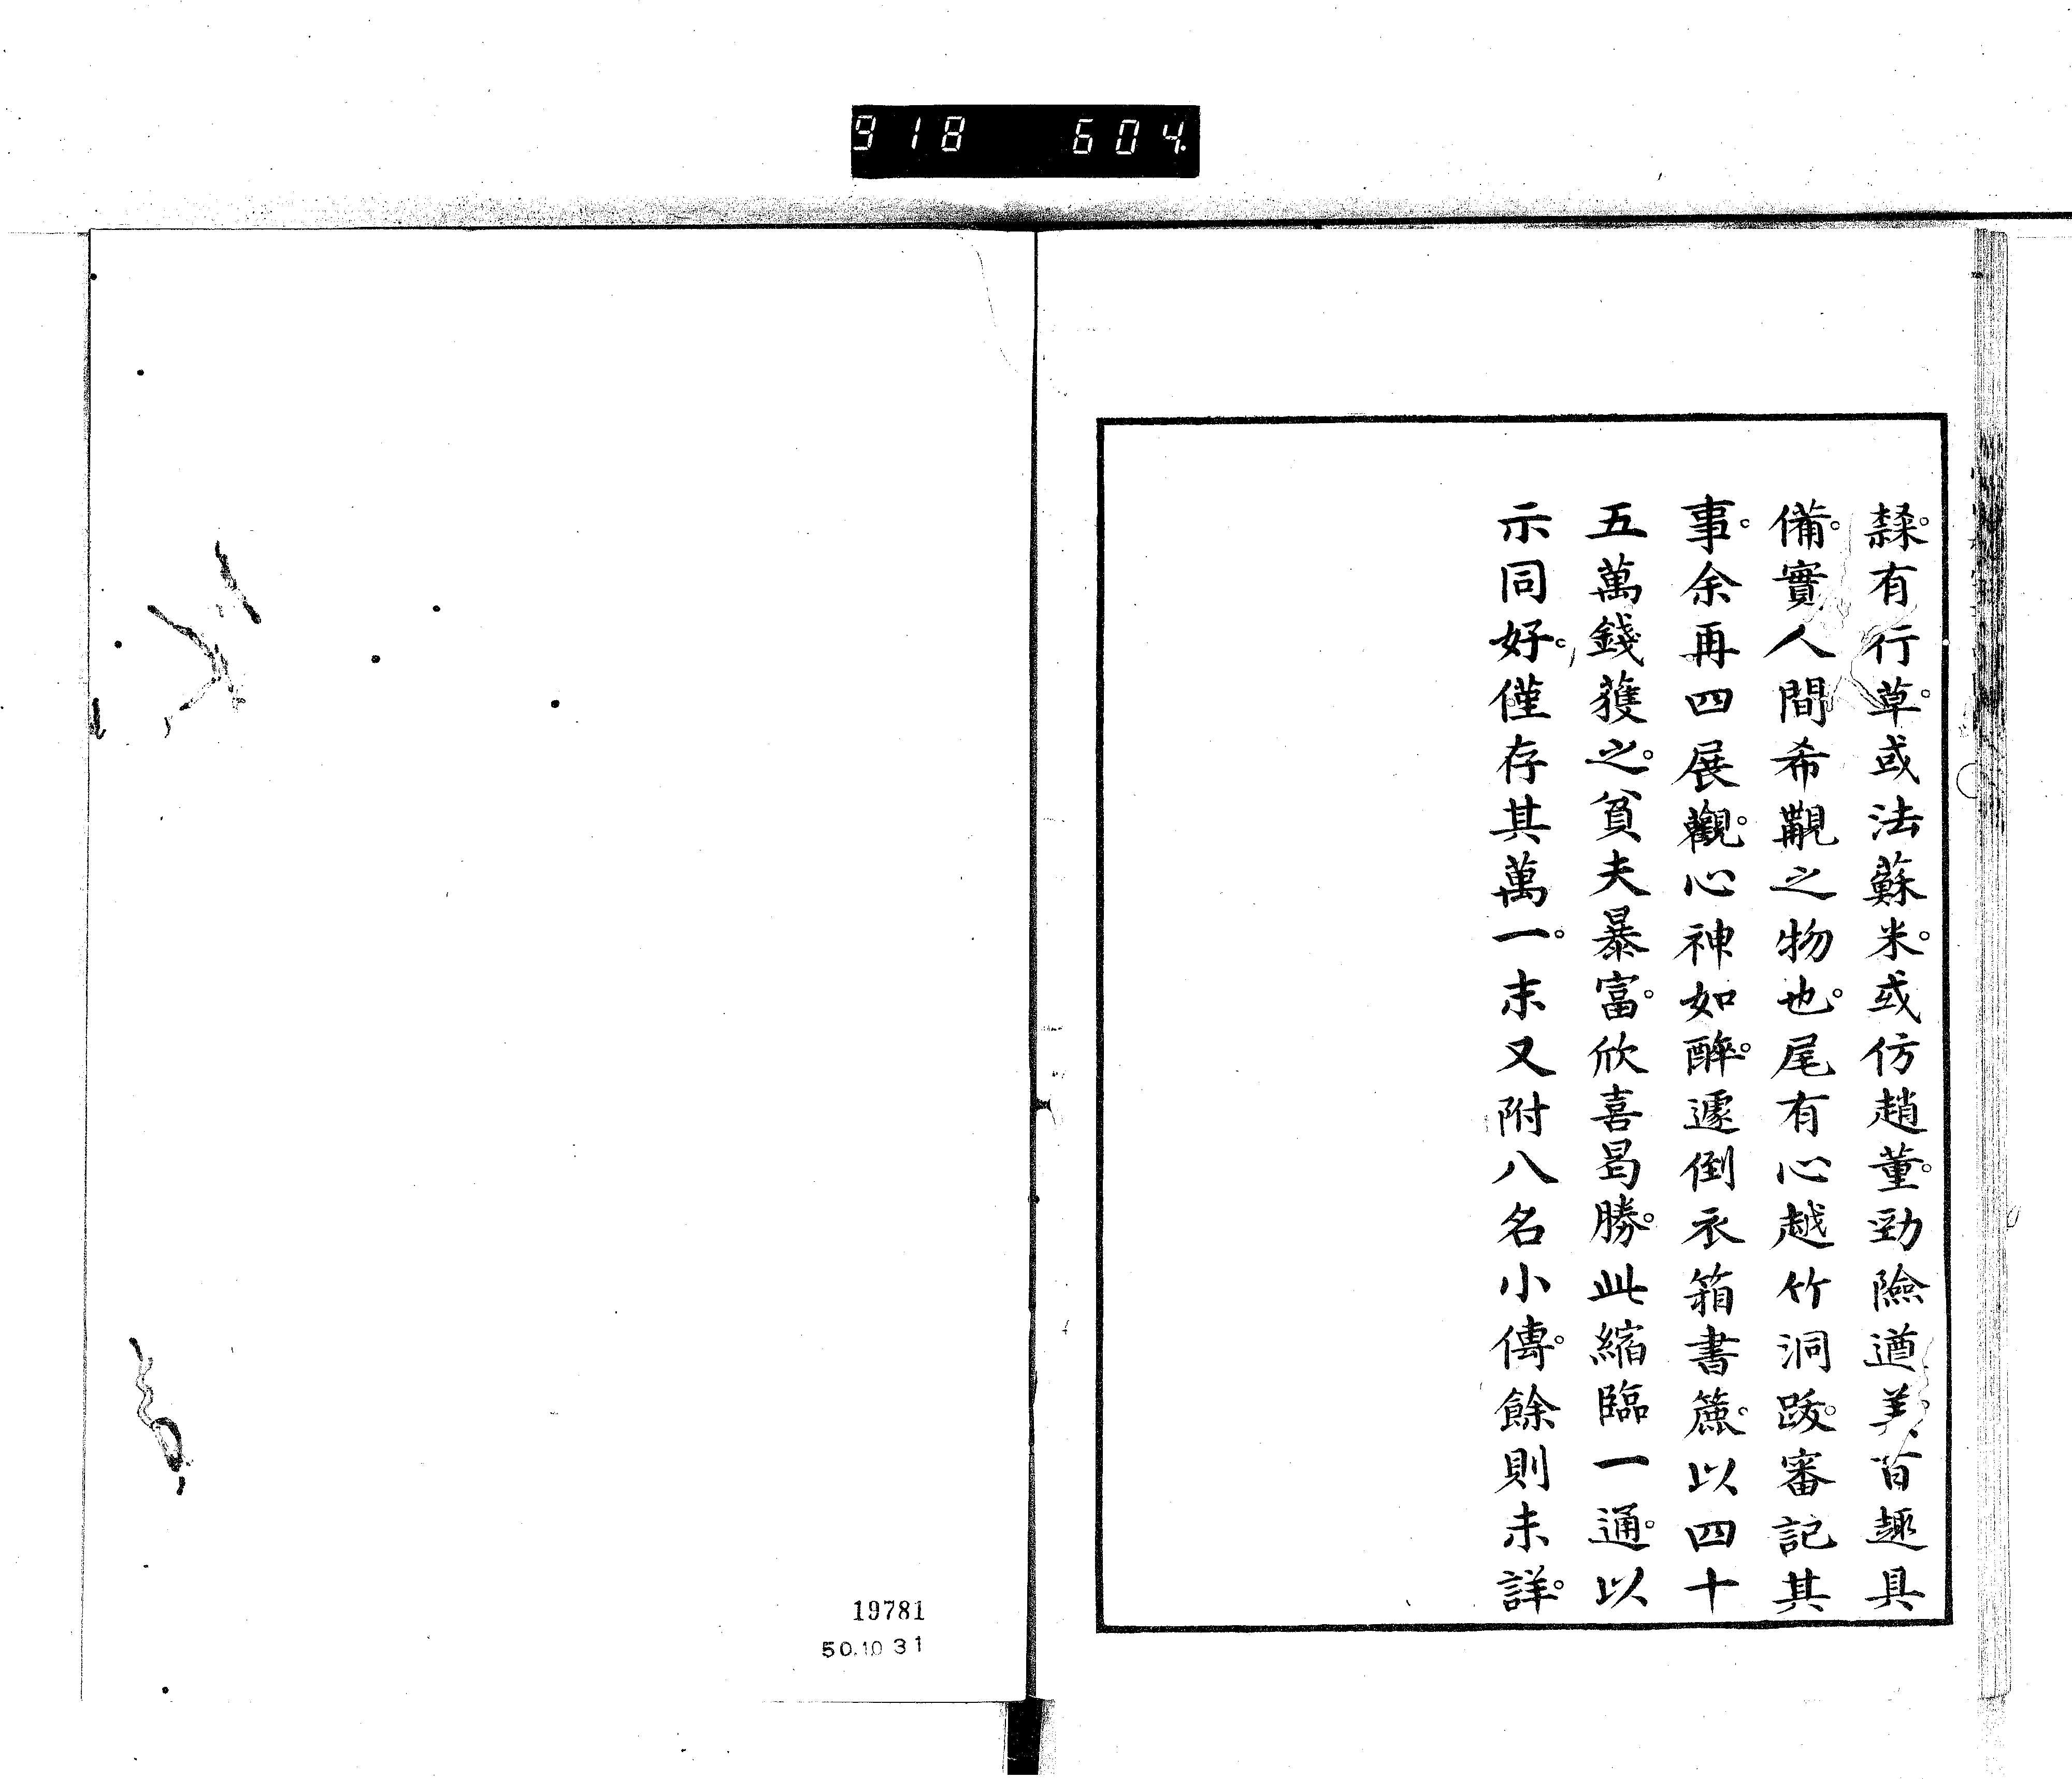 918 604.
隸。有行草。或法蘇米。或仿趙董。勁險遒美。百趣具
備。實人間希覯之物也。尾有心越竹洞跋。審記其
事。余再四展觀。心神如醉。遽倒衣箱書簏。以四十
五萬錢獲之。貧夫暴富。欣喜曷勝。此縮臨一通。以
示同好。僅存其萬一。末又附八名小傳。餘則未詳。
19781
50.10 31